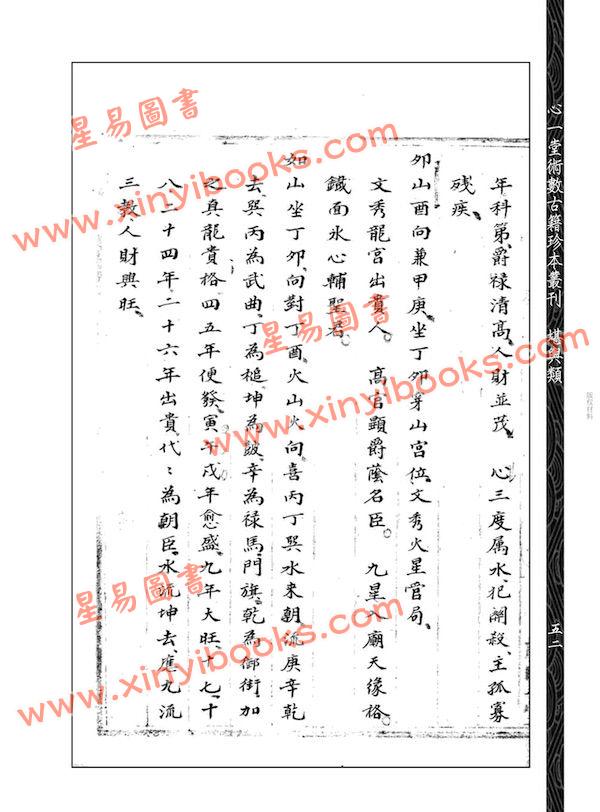 心一堂術數古籍珍本叢刊 堪輿類
五二
年科第、爵祿清高、人財並茂、 心三度属水、犯關殺、主孤寡
残疾、
夘山酉向兼甲庚、坐丁夘穿山宮位、文秀火星管局、
文秀龍宮出貴人 高官顯爵蔭名臣。 九星入廟天緣格
鐵面氷心輔聖君。
如山坐丁夘、向對丁酉、火山火向、喜丙丁巽水来朝、流庚辛乾
去、巽丙為武曲、丁為槌、坤為皷、辛為禄馬、門旗、乾為御街、加
之真龍貴格、四五年便發、寅午戌年愈盛、九年大旺、十七、十
八二十四年、二十六年出貴、代〻為朝臣、水流坤去、應九流
三教、人財興旺、
版权材料
星易圖書
www.xinyibooks.com
星易圖書
www.xinyibooks.com
星易圖書
www.xinyibooks.com